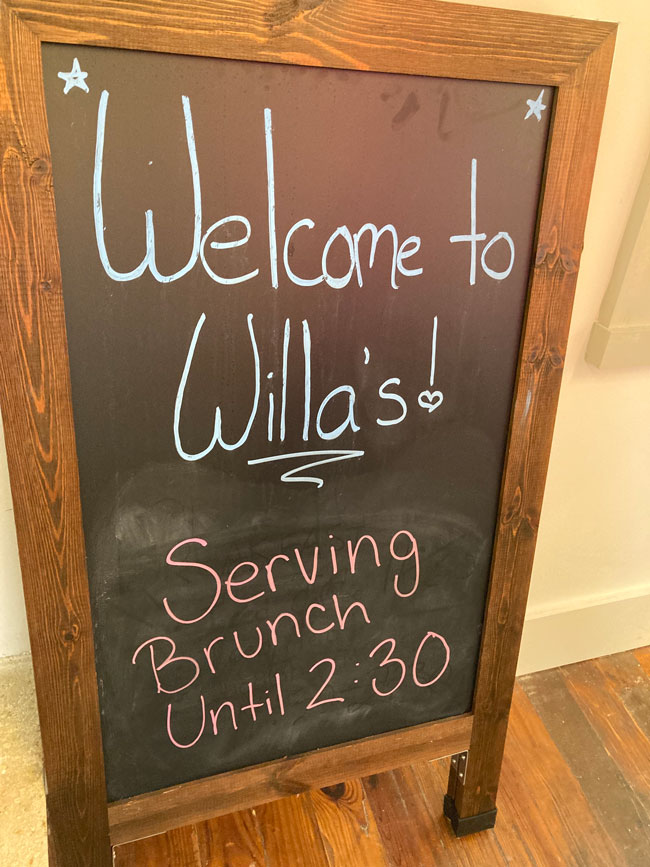 Welcome to
Willa's!
Serving
Brunch
Until 2:30